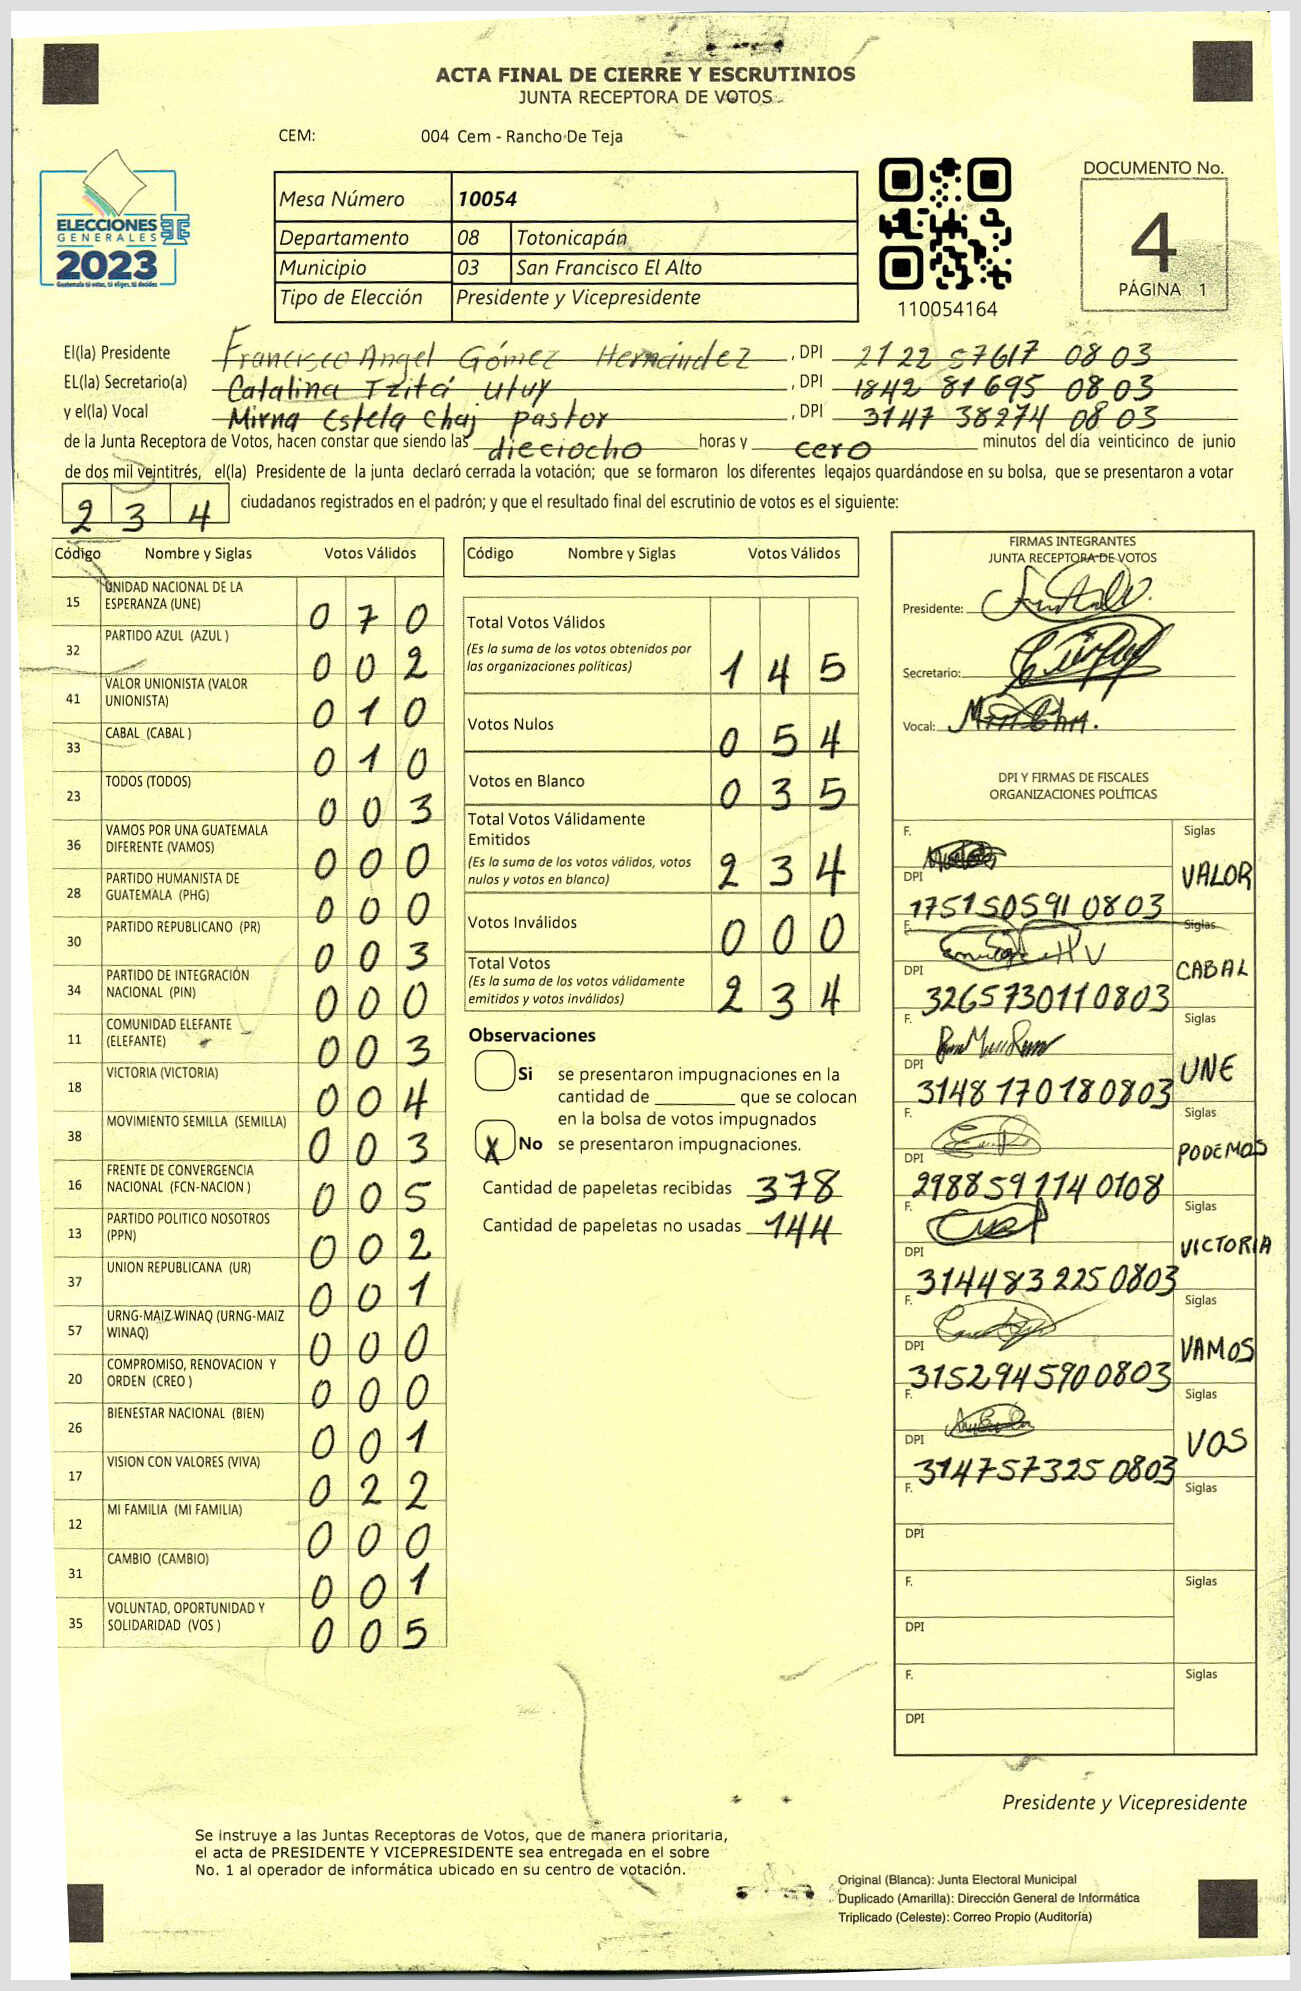 ACTA FINAL DE CIERRE Y ESCRUTINIOS
JUNTA RECEPTORA DE VOTOS
CEM: 004 Cem - Rancho De Teja
DOCUMENTO No.
4
PÁGINA 1
ELECCIONES
GENERALES
2023
Guatemala tú votas, tú eliges, tú decides
Mesa Número 10054
Departamento 08 Totonicapán
Municipio 03 San Francisco El Alto
Tipo de Elección Presidente y Vicepresidente
110054164
El(la) Presidente Francisco Angel Gómez Hernández , DPI 2122 57617 0803
EL(la) Secretario(a) Catalina Tzitá Utuy , DPI 1842 81695 0803
y el(la) Vocal Mirna Estela Chaj Pastor , DPI 3147 38274 0803
de la Junta Receptora de Votos, hacen constar que siendo las dieciocho horas y cero minutos del día veinticinco de junio
de dos mil veintitrés, el(la) Presidente de la junta declaró cerrada la votación; que se formaron los diferentes legajos quardándose en su bolsa, que se presentaron a votar
2 3 4 ciudadanos registrados en el padrón; y que el resultado final del escrutinio de votos es el siguiente:
Código Nombre y Siglas Votos Válidos
15 UNIDAD NACIONAL DE LA
ESPERANZA (UNE) 0 7 0
32 PARTIDO AZUL (AZUL ) 0 0 2
41 VALOR UNIONISTA (VALOR
UNIONISTA) 0 1 0
33 CABAL (CABAL ) 0 1 0
23 TODOS (TODOS) 0 0 3
36 VAMOS POR UNA GUATEMALA
DIFERENTE (VAMOS) 0 0 0
28 PARTIDO HUMANISTA DE
GUATEMALA (PHG) 0 0 0
30 PARTIDO REPUBLICANO (PR) 0 0 3
34 PARTIDO DE INTEGRACIÓN
NACIONAL (PIN) 0 0 0
11 COMUNIDAD ELEFANTE
(ELEFANTE) 0 0 3
18 VICTORIA (VICTORIA) 0 0 4
38 MOVIMIENTO SEMILLA (SEMILLA) 0 0 3
16 FRENTE DE CONVERGENCIA
NACIONAL (FCN-NACION ) 0 0 5
13 PARTIDO POLITICO NOSOTROS
(PPN) 0 0 2
37 UNION REPUBLICANA (UR) 0 0 1
57 URNG-MAIZ WINAQ (URNG-MAIZ
WINAQ) 0 0 0
20 COMPROMISO, RENOVACION Y
ORDEN (CREO ) 0 0 0
26 BIENESTAR NACIONAL (BIEN) 0 0 1
17 VISION CON VALORES (VIVA) 0 2 2
12 MI FAMILIA (MI FAMILIA) 0 0 0
31 CAMBIO (CAMBIO) 0 0 1
35 VOLUNTAD, OPORTUNIDAD Y
SOLIDARIDAD (VOS ) 0 0 5
Código Nombre y Siglas Votos Válidos
Total Votos Válidos
(Es la suma de los votos obtenidos por
las organizaciones políticas) 1 4 5
Votos Nulos 0 5 4
Votos en Blanco 0 3 5
Total Votos Válidamente
Emitidos
(Es la suma de los votos válidos, votos
nulos y votos en blanco) 2 3 4
Votos Inválidos 0 0 0
Total Votos
(Es la suma de los votos válidamente
emitidos y votos inválidos) 2 3 4
Observaciones
Si se presentaron impugnaciones en la
cantidad de ________ que se colocan
en la bolsa de votos impugnados
X No se presentaron impugnaciones.
Cantidad de papeletas recibidas 378
Cantidad de papeletas no usadas 144
FIRMAS INTEGRANTES
JUNTA RECEPTORA DE VOTOS
Presidente:
Secretario:
Vocal:
DPI Y FIRMAS DE FISCALES
ORGANIZACIONES POLÍTICAS
F. Siglas
DPI VALOR
1751505910803
F. Siglas
DPI CABAL
3265730110803
F. Siglas
DPI UNE
3148170180803
F. Siglas
DPI PODEMOS
2988591140108
F. Siglas
DPI VICTORIA
3144832250803
F. Siglas
DPI VAMOS
3152945900803
F. Siglas
DPI VOS
3147573250803
F. Siglas
DPI
F. Siglas
DPI
F. Siglas
DPI
Presidente y Vicepresidente
Se instruye a las Juntas Receptoras de Votos, que de manera prioritaria,
el acta de PRESIDENTE Y VICEPRESIDENTE sea entregada en el sobre
No. 1 al operador de informática ubicado en su centro de votación.
Original (Blanca): Junta Electoral Municipal
Duplicado (Amarilla): Dirección General de Informática
Triplicado (Celeste): Correo Propio (Auditoría)